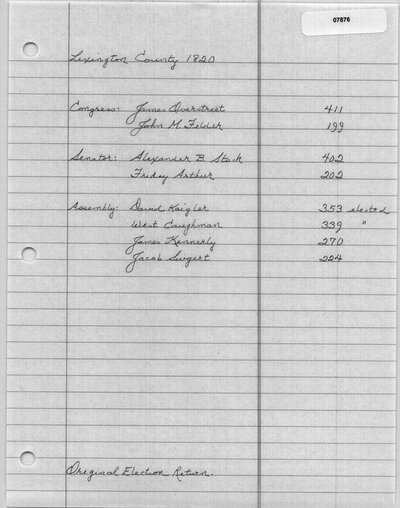 07876
Lexington County 1820
Congress: James Overstreet 411
John M. Felder 199
Senator: Alexander B. Stark 402
Friday Arthur 202
Assembly: David Kaigler 353 elected
West Caughman 339 "
James Kennerly 270
Jacob Swygert 224
Original Election Return.